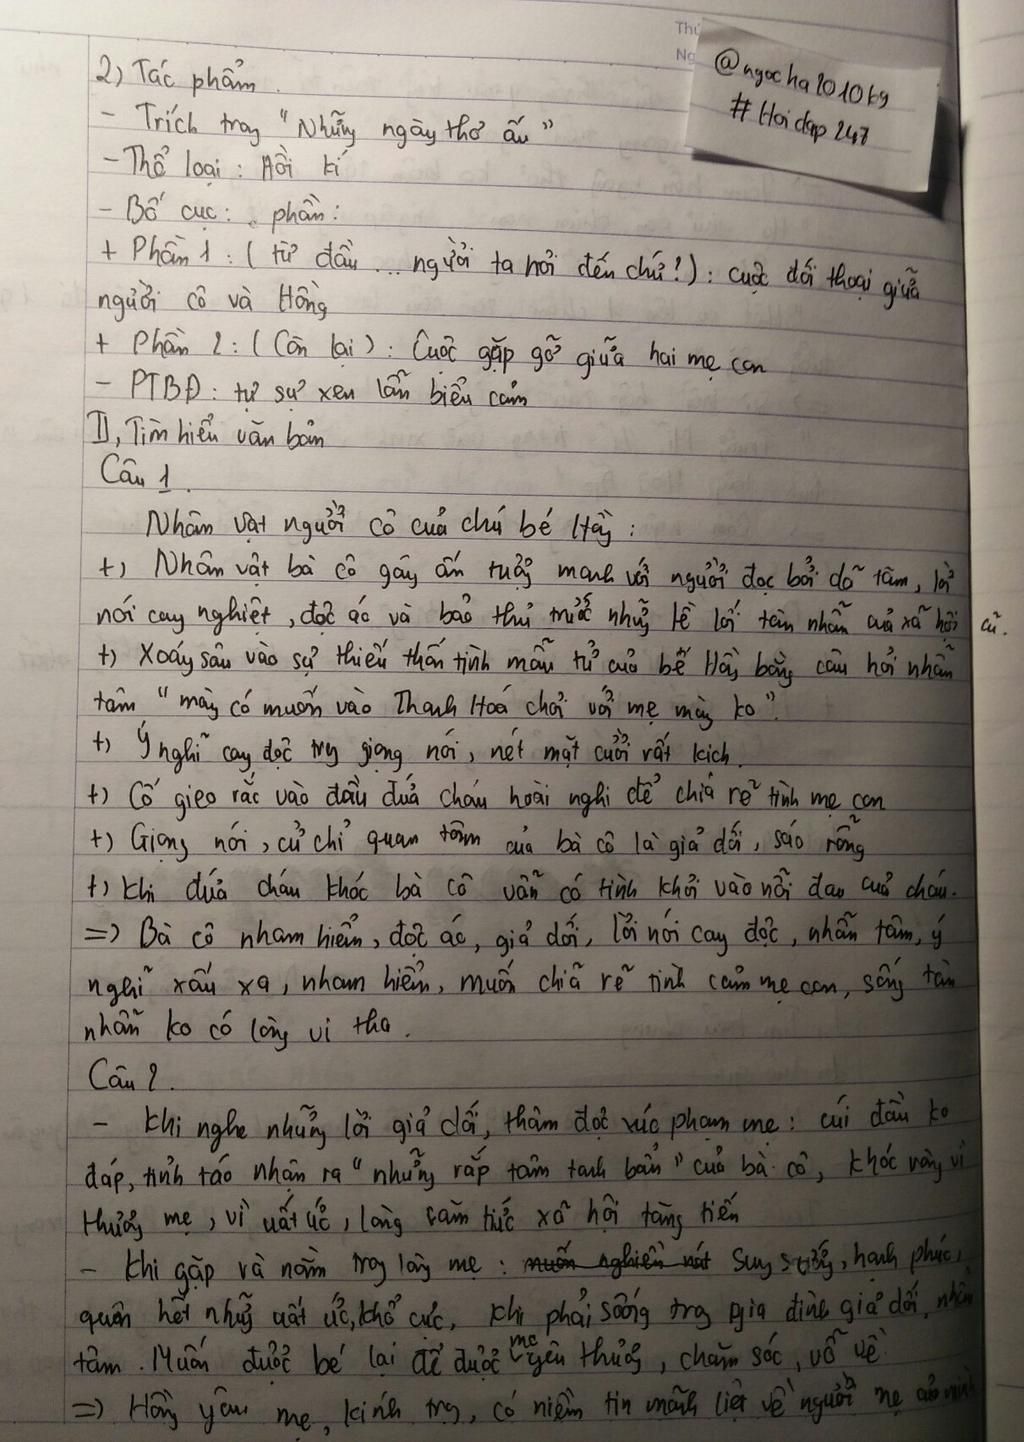 Thứ
Ng
@ngocha201069
#Hoidap247
2) Tác phẩm.
- Trích trog "Những ngày thơ ấu"
- Thể loại: Hồi kí
- Bố cục: phần:
+ Phần 1: (từ đầu ... người ta hỏi đến chứ!): cuộc đối thoại giữa
người cô và Hồng
+ Phần 2: (Còn lại): Cuộc gặp gỡ giữa hai mẹ con
- PTBĐ: tự sự xen lẫn biểu cảm
II, Tìm hiểu văn bản
Câu 1.
Nhân vật người cô của chú bé Hồng:
+) Nhân vật bà cô gây ấn tượng mạnh với người đọc bởi dã tâm, lời
nói cay nghiệt, độc ác và bảo thủ trước những lề lối tàn nhẫn của xã hội cũ.
+) Xoáy sâu vào sự thiếu thốn tình mẫu tử của bé Hồng bằng câu hỏi nhẫn
tâm "mày có muốn vào Thanh Hoá chơi với mẹ mày ko".
+) Ý nghĩ cay độc trg giọng nói, nét mặt cười rất kịch.
+) Cố gieo rắc vào đầu đứa cháu hoài nghi để chia rẽ tình mẹ con
+) Giọng nói, cử chỉ quan tâm của bà cô là giả dối, sáo rỗng
+) Khi đứa cháu khóc bà cô vẫn cố tình khơi vào nỗi đau của cháu.
=> Bà cô nham hiểm, độc ác, giả dối, lời nói cay độc, nhẫn tâm, ý
nghĩ xấu xa, nham hiểm, muốn chia rẽ tình cảm mẹ con, sống tàn
nhẫn ko có lòng vị tha.
Câu 2.
- Khi nghe những lời giả dối, thâm độc xúc phạm mẹ: cúi đầu ko
đáp, tỉnh táo nhận ra "những rắp tâm tanh bẩn" của bà cô, khóc vì
thương mẹ, vì uất ức, lòng căm tức xã hội tăng tiến
- Khi gặp và nằm trog lòng mẹ: muốn nghiền nát sung sướng, hạnh phúc,
quên hết những uất ức, khổ cực, khi phải sống trog gia đình giả dối, nhẫn
tâm. Muốn được bé lại để được mẹ yêu thương, chăm sóc, vỗ về
=> Hồng yêu mẹ, kính trọng, có niềm tin mãnh liệt về người mẹ của mình